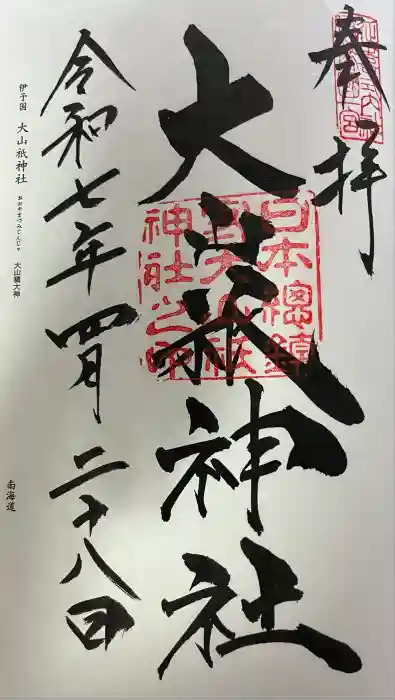 奉拝
大山祇神社
日本總鎮
守大山祇
神社之印
令和七年四月二十八日
伊予国 大山祇神社 おおやまづみじんじゃ 大山積大神
南海道